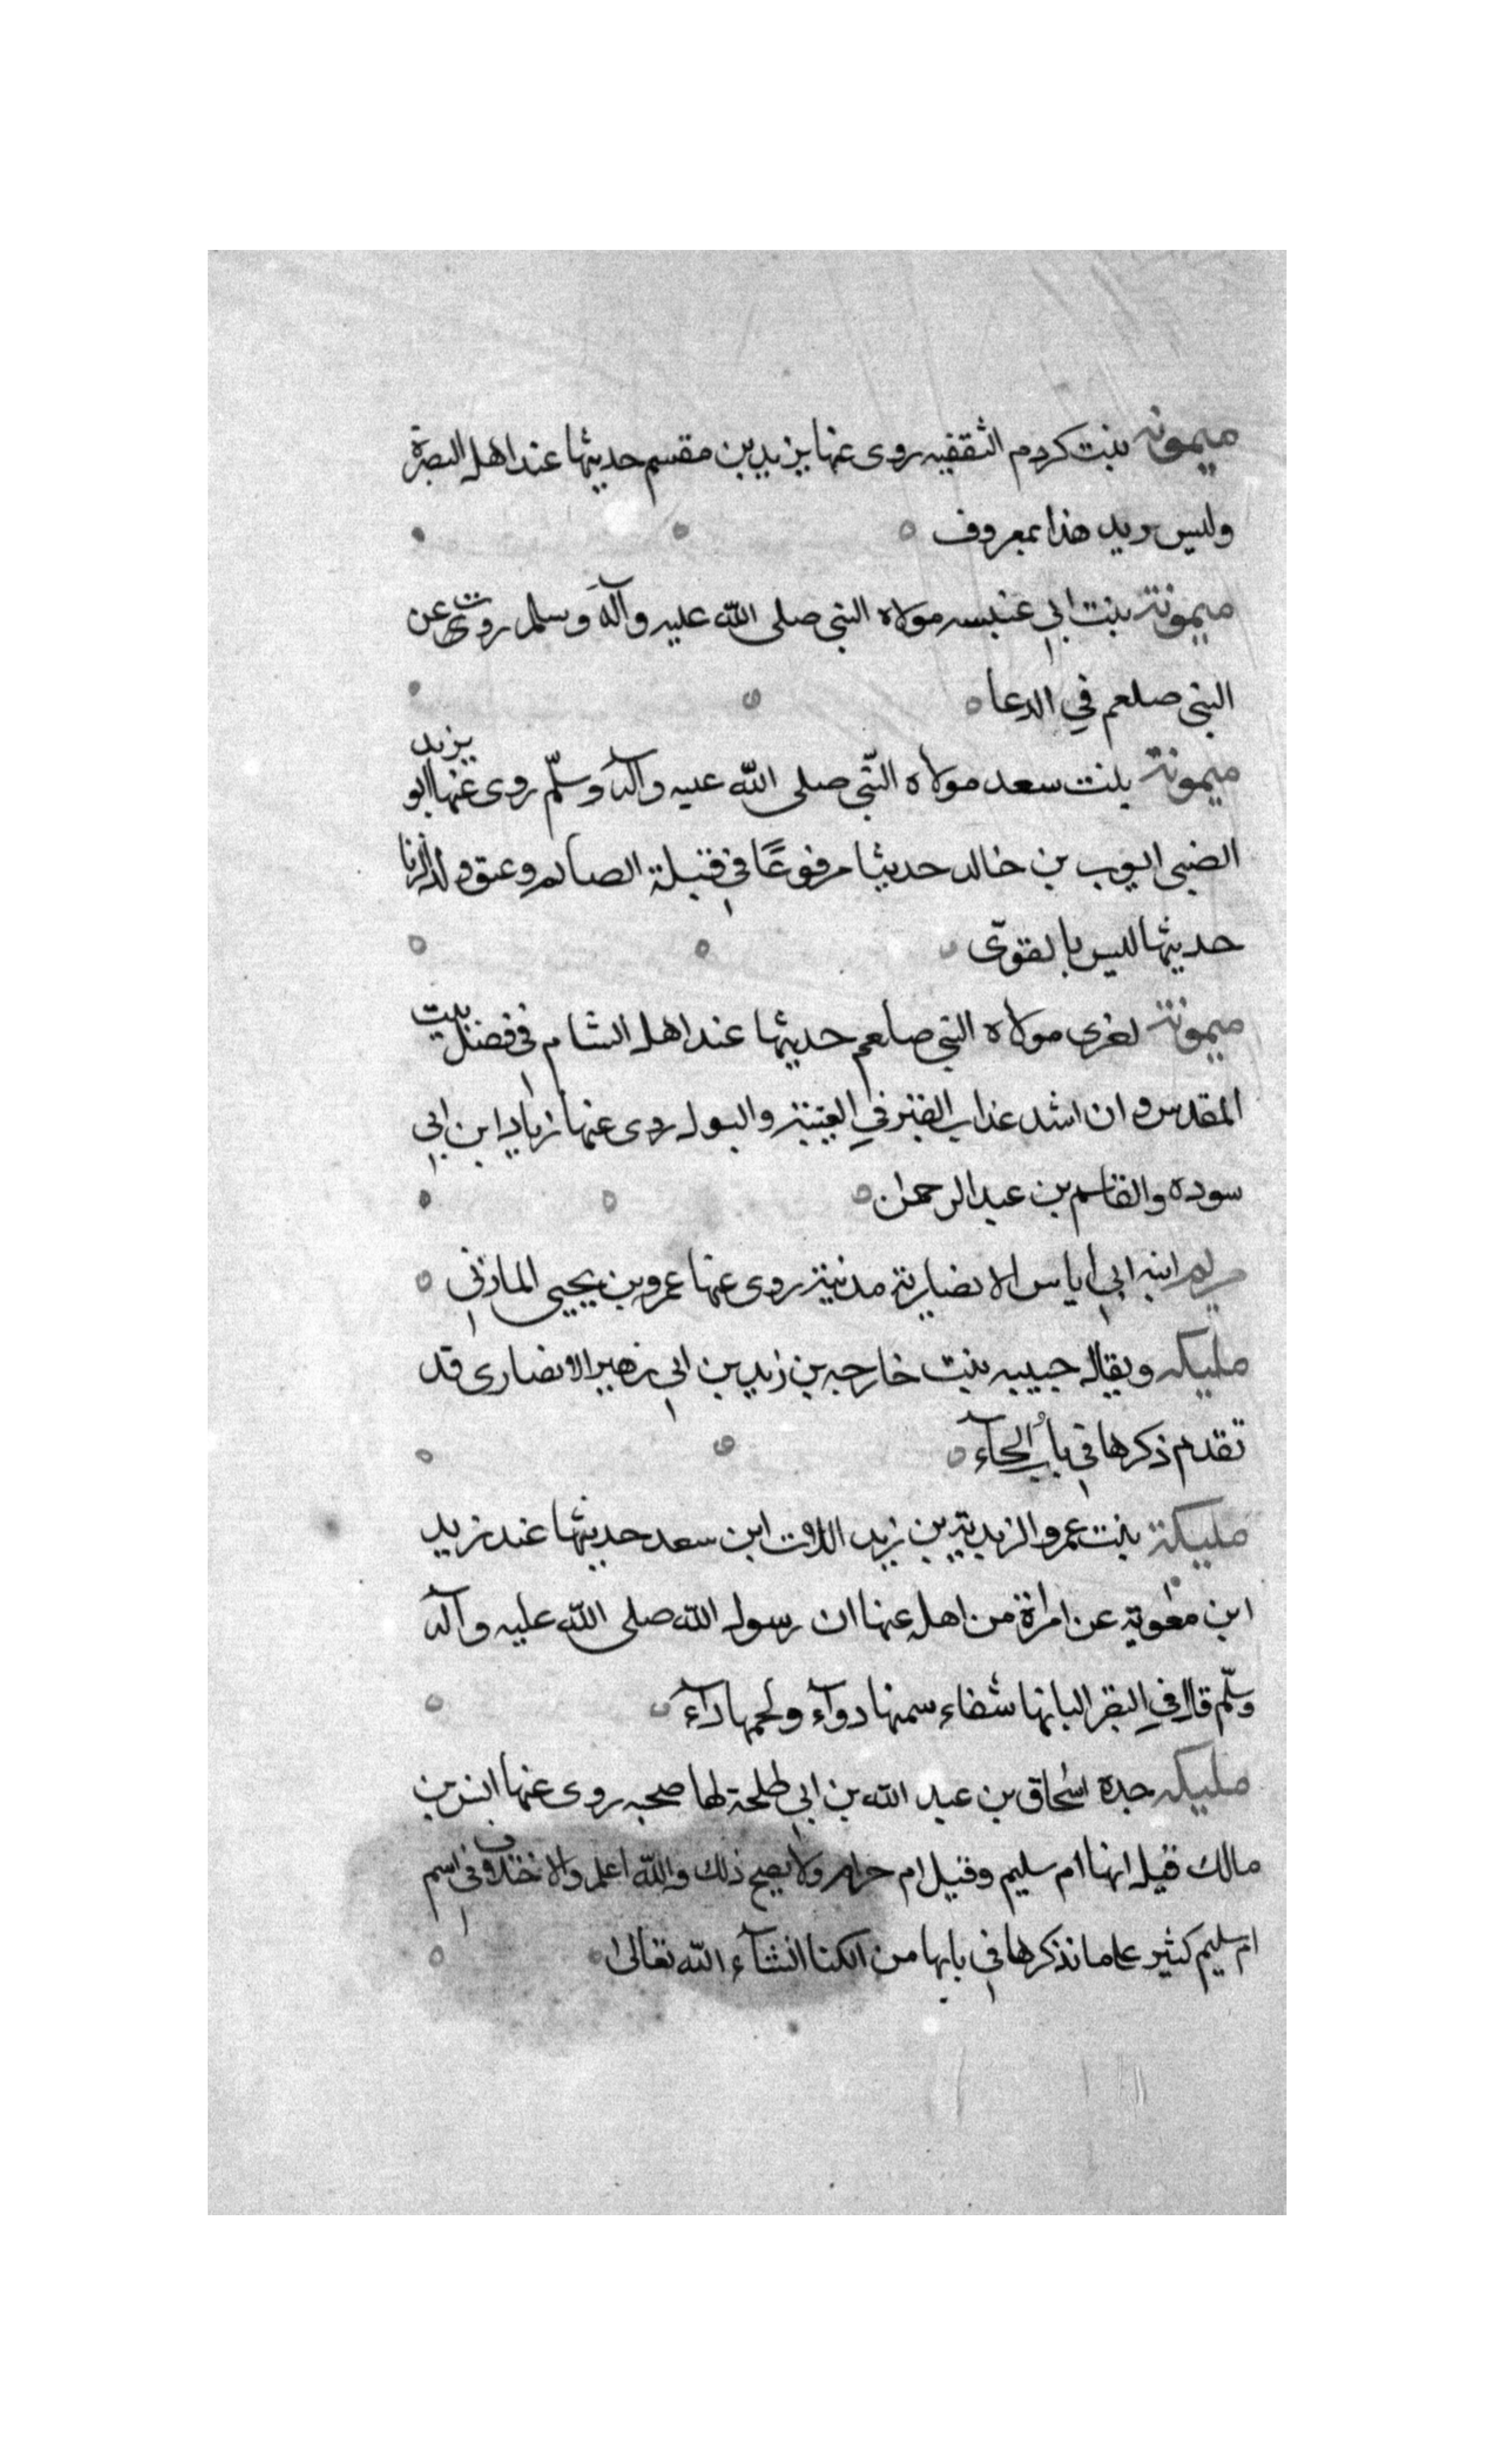 ميمونة بنت كردم الثقفيه روى عنها يزيد بن مقسم حديثها عند اهل البصرة
وليس يريد هذا بمعروف
ميمونة بنت ابي عنبسه مولاه النبي صلى الله عليه وآله وسلم روت عن
النبي صلعم في الدعا
ميمونة بنت سعد مولاه النبي صلى الله عليه وآله وسلم روى عنها ابو يزيد
الضبي ايوب بن خالد حديثا مرفوعًا في قبلة الصايم وعتق ولد الزنا
حديثها ليس بالقوىّ
ميمونة اخرى مولاه النبي صلعم حديثها عند اهل الشام في فضل بيت
المقدس وان اشد عذاب القبر في الغيبة والبول روى عنها زياد ابن ابي
سوده والقاسم بن عبد الرحمن
مريم ابنه ابي اياس الانصارية مدنية روى عنها عمرو بن يحيى المازني
مليكه ويقال حبيبه بنت خارجه بن زيد بن ابي زهير الانصارى قد
تقدم ذكرها في باب الحآء
مليكة بنت عمرو الزيدية بن زيد اللات ابن سعد حديثها عند زيد
ابن معوية عن امراة من اهله عنها ان رسول الله صلى الله عليه وآله
وسلّم قال في البقر البانها شفاء سمنها دوآء ولحمها دآء
مليكه جدة اسحاق بن عبد الله بن ابي طلحة لها صحبه روى عنها انس بن
مالك قيل انها ام سليم وقيل ام حرام ولا يصح ذلك والله اعلم والاختلاف في اسم
ام سليم كثير على ما نذكرها في بابها من الكنا انشآء الله تعالى